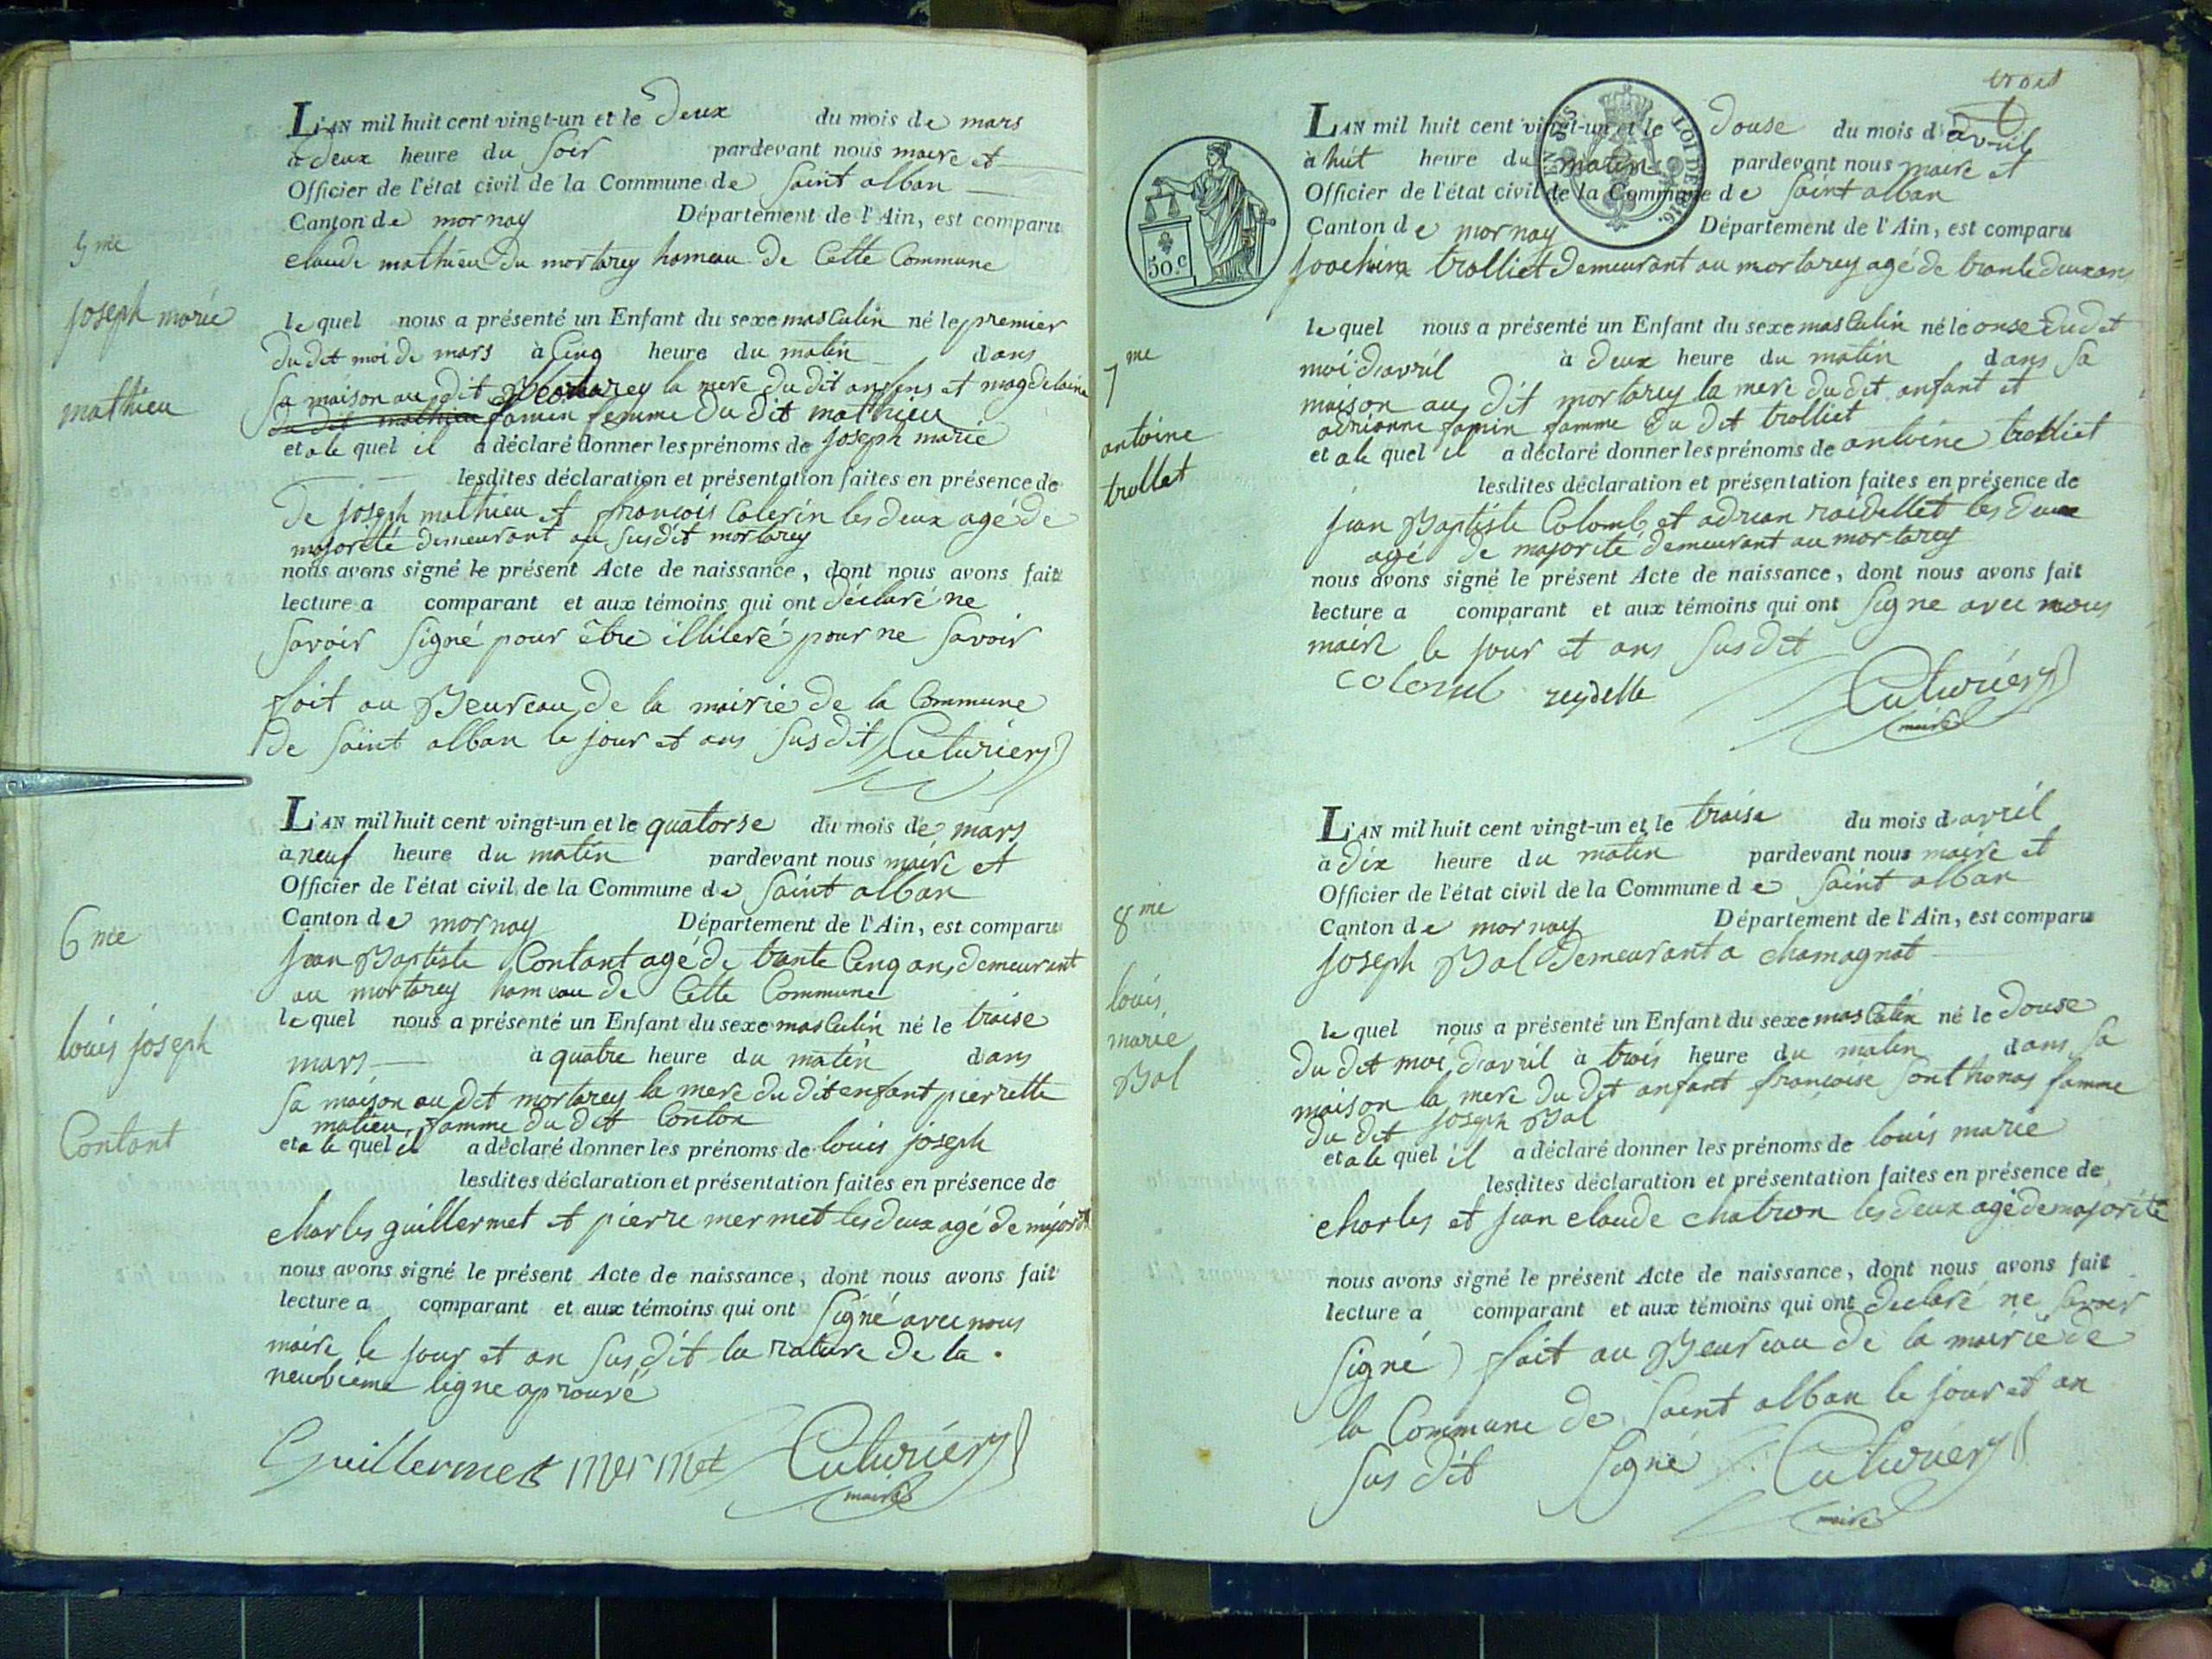 L'AN mil huit cent vingt-un et le Deux du mois de mars
à deux heure du soir pardevant nous maire et
Officier de l'état civil de la Commune de saint alban
Canton de mornay Département de l'Ain, est comparu
claude mathieu du mortarey hameau de Cette Commune
5me
joseph marie
mathieu
le quel nous a présenté un Enfant du sexe masculin né le premier
du dit moi de mars à Cinq heure du matin dans
sa maison au dit Mortarey la mere du dit anfens et magdelaine
du dit mathieu famin femme du dit mathieu
et a le quel il a déclaré donner les prénoms de joseph marie
lesdites déclaration et présentation faites en présence de
De joseph mathieu et françois Colerin les deux agé de
majorité demeurant au susdit mortarey
nous avons signé le présent Acte de naissance, dont nous avons fait
lecture a comparant et aux témoins qui ont déclaré ne
savoir signé pour être illiteré pour ne savoir
fait au Beureau de la mairie de la Commune
de saint alban le jour et ans susdit Cuturiery
L'AN mil huit cent vingt-un et le quatorse du mois de mars
à neuf heure du matin pardevant nous maire et
Officier de l'état civil de la Commune de saint alban
Canton de mornay Département de l'Ain, est comparu
jean Baptiste Contant agé de trante Cinq ans demeurant
au mortarey hameau de Cette Commune
6me
louis joseph
Contant
le quel nous a présenté un Enfant du sexe masculin né le traise
mars à quatre heure du matin dans
sa maison au dit mortarey la mere du dit enfant pierrette
matieu famme du dit Conton
et a le quel il a déclaré donner les prénoms de louis joseph
lesdites déclaration et présentation faites en présence de
charles guillermet et pierre mermet les deux agé de majorité
nous avons signé le présent Acte de naissance, dont nous avons fait
lecture a comparant et aux témoins qui ont signé avec nous
maire le jour et an susdit la rature de la
neuvieme ligne aprouvé
Guillermet mermet Cuturiery
maire
trois
L'AN mil huit cent vingt-un et le Douse du mois d'avril
à huit heure du matin pardevant nous maire et
Officier de l'état civil de la Commune de saint alban
Canton de mornay Département de l'Ain, est comparu
joachim trolliet demeurant au mortarey agé de trante deux ans
LOI DE 1816.
50.c
7me
antoine
trollet
le quel nous a présenté un Enfant du sexe masculin né le onse du dit
moi d'avril à deux heure du matin dans sa
maison au dit mortarey la mere du dit enfant et
adrianne famin famme du dit trolliet
et a le quel il a déclaré donner les prénoms de antoine trolliet
lesdites déclaration et présentation faites en présence de
jean Baptiste Colomb et adrian raidellet les deux
agé de majorité demeurant au mortarey
nous avons signé le présent Acte de naissance, dont nous avons fait
lecture a comparant et aux témoins qui ont signe avec nous
maire le jour et ans susdit
colomb reydelle Cuturiery
maire
L'AN mil huit cent vingt-un et le traise du mois d avril
à dix heure du matin pardevant nous maire et
Officier de l'état civil de la Commune de saint alban
Canton de mornay Département de l'Ain, est comparu
joseph Bal demeurant a chamagnat
8me
louis
marie
Bal
le quel nous a présenté un Enfant du sexe masculin né le Douse
du dit moi d'avril à trois heure du matin dans sa
maison la mere du dit anfant françoise sonthonas famme
du dit joseph Bal
et a le quel il a déclaré donner les prénoms de louis marie
lesdites déclaration et présentation faites en présence de
charles et jean claude chatron les deux agé de majorité
nous avons signé le présent Acte de naissance, dont nous avons fait
lecture a comparant et aux témoins qui ont declaré ne savoir
signé fait au Beureau de la mairie de
la Commune de saint alban le jour et an
sus dit signé Cuturiery
maire